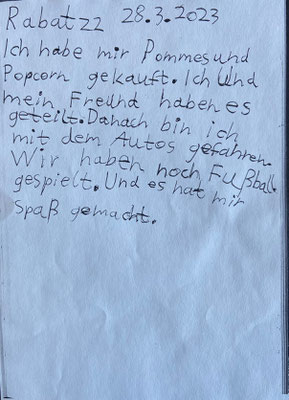 Rabatzz 28.3.2023
Ich habe mir Pommes und
Popcorn gekauft. Ich und
mein Freund haben es
geteilt. Danach bin ich
mit dem Autos gefahren.
Wir haben noch Fußball
gespielt. Und es hat mir
Spaß gemacht.